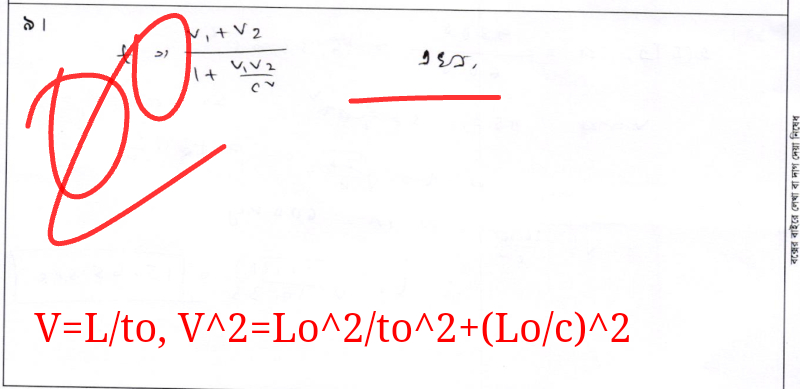 ৯।
t => \frac{v_1 + v_2}{1 + \frac{v_1 v_2}{c^v}}
V=L/to, V^2=Lo^2/to^2+(Lo/c)^2
বক্সের বাইরে লেখা বা দাগ দেয়া নিষেধ